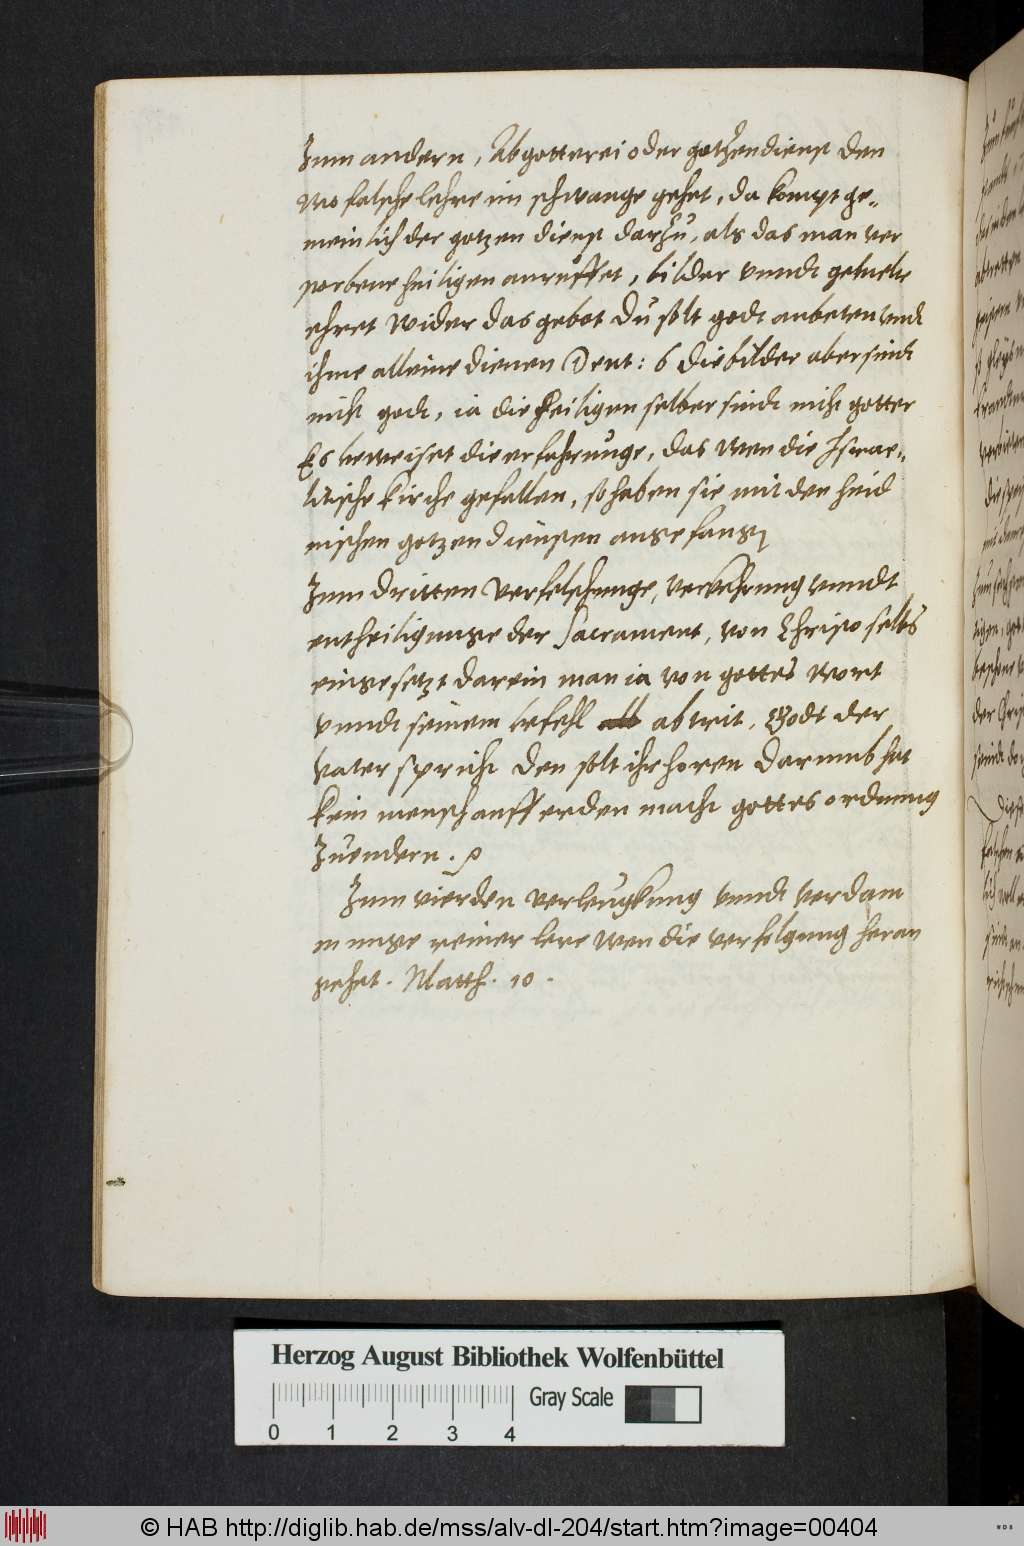 Zum andern, Abgotterei oder gotzendienst den
wo falsche lehre im schwange gehet, da kompt ge-
meinlich der gotzen dienst darzu, als das man ver
storbene heiligen anruffet, bilder vnndt
ehret wider das gebot Du solt godt anbeten vndt
ihme alleine dienen Deut: 6 die bilder aber sindt
nicht godt, ia die heiligen selber sindt nicht gotter
Es beweiset die erfahrunge, das wen die Israe-
litische kirche gefallen, so haben sie mit den heid
nischen gotzen diensten angefangen
Zum dritten verfelschunge, verkehrung vnndt
entheiligunge der Sacrament, von Christo selbs
eingesetzt darein man ia von gottes wort
vnndt seinem befehl abtrit, Godt der
vater spricht den solt ihr horen Darumb hat
kein mensch auff erden macht gottes ordnung
Zuendern.
Zum vierden verleugkung vnndt verdam
munge reiner lere wen die verfolgung heran
gehet. Matth. 10.
Herzog August Bibliothek Wolfenbüttel
0 1 2 3 4
Gray Scale
© HAB http://diglib.hab.de/mss/alv-dl-204/start.htm?image=00404